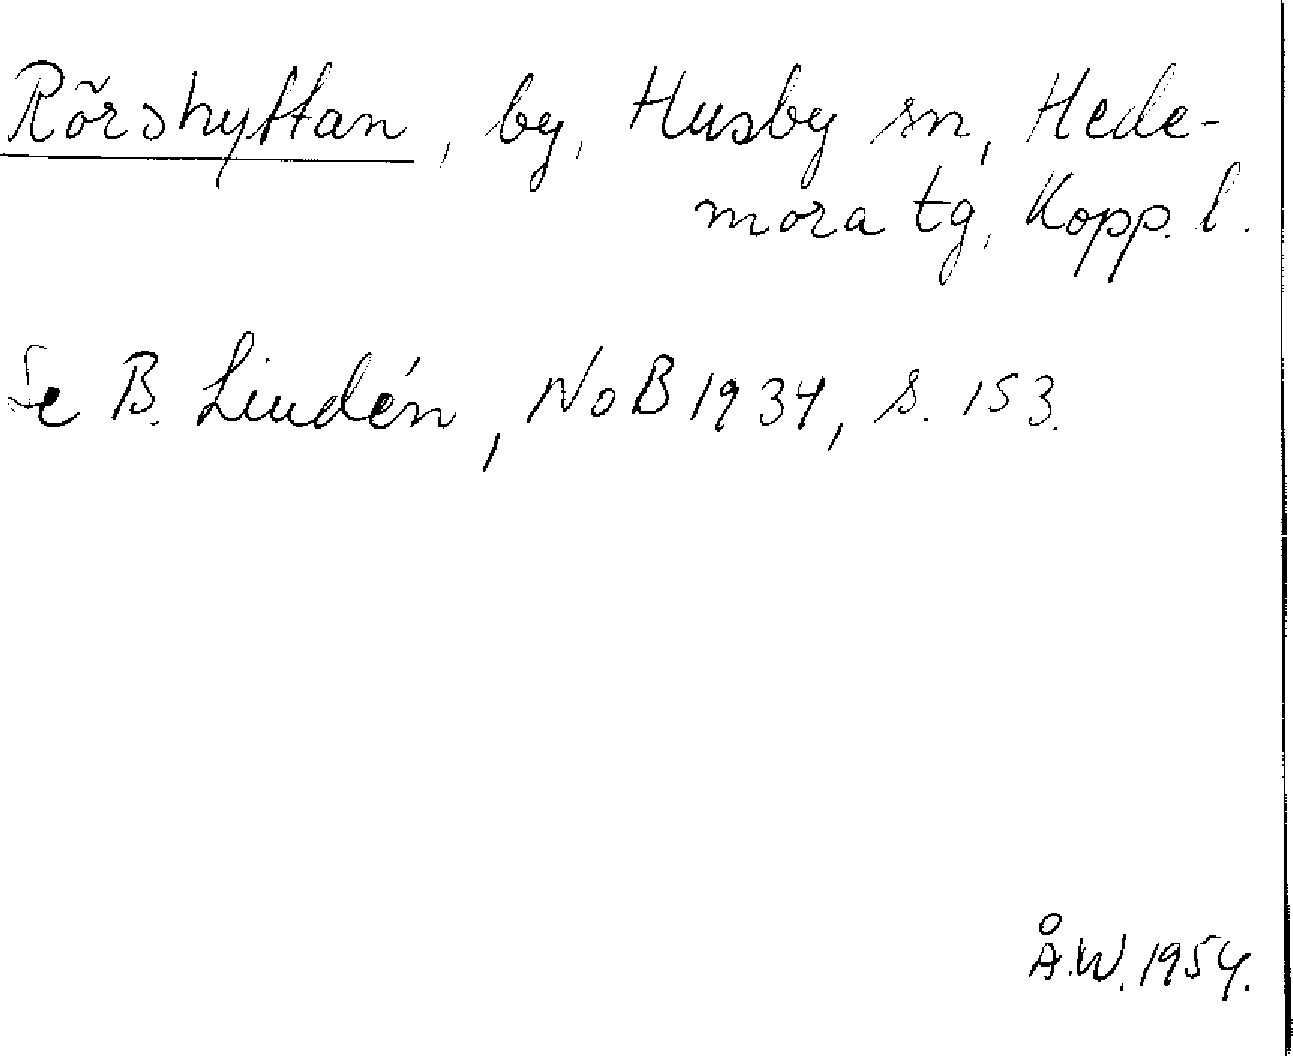 Rörshyttan, by, Husby sn, Hede-
mora tg, Kopp. l.
Se B. Lindén, NoB 1934, s. 153.
Å.W. 1954.